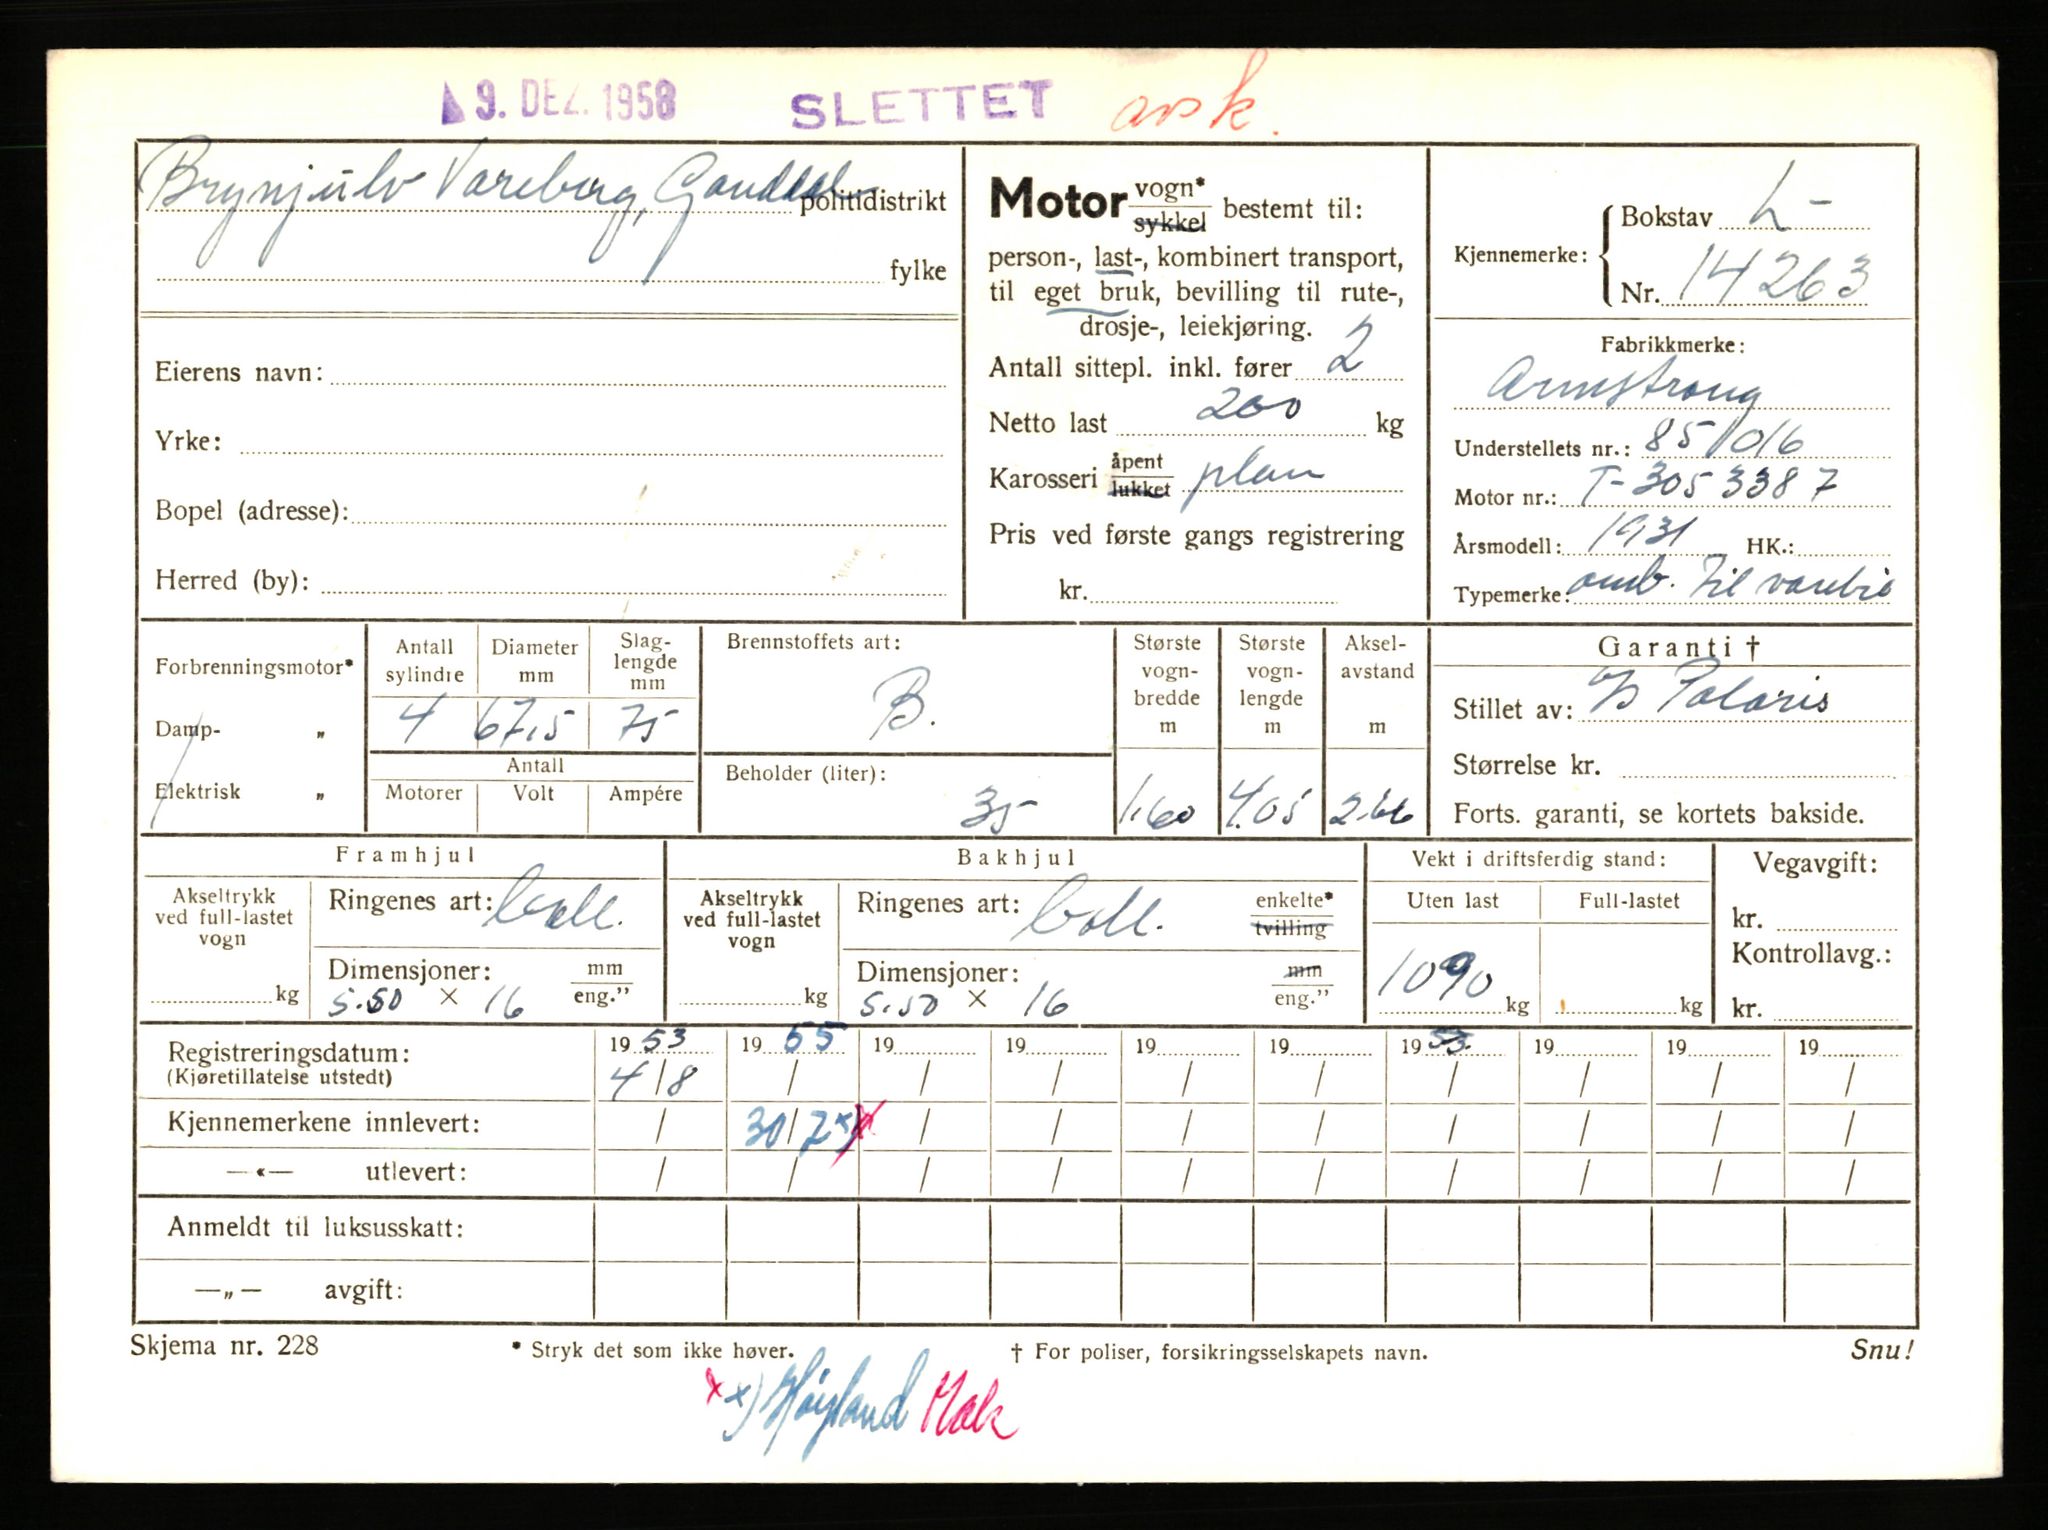 9. DEZ. 1958 SLETTET avsk.
Brynjulv Vareberg, Ganddal politidistrikt
fylke
Eierens navn:
Yrke:
Bopel (adresse):
Herred (by):
Motor vogn* sykkel bestemt til:
person-, last-, kombinert transport,
til eget bruk, bevilling til rute-,
drosje-, leiekjøring.
Antall sittepl. inkl. fører 2
Netto last 200 kg
Karosseri åpent lukket plan
Pris ved første gangs registrering
kr.
Kjennemerke: Bokstav L-
Nr. 14263
Fabrikkmerke:
Armstrong
Understellets nr.: 851016
Motor nr.: T-3053387
Årsmodell: 1931 HK.:
Typemerke: omb. til varebil
Forbrenningsmotor*
Damp- „
Elektrisk „
Antall sylindre 4
Diameter mm 67,5
Slag-lengde mm 75
Antall
Motorer Volt Ampére
Brennstoffets art:
B.
Beholder (liter):
35
Største vogn-bredde m 1.60
Største vogn-lengde m 4.05
Aksel-avstand m 2.66
Garanti †
Stillet av: Polaris
Størrelse kr.
Forts. garanti, se kortets bakside.
Framhjul
Akseltrykk ved full-lastet vogn
kg
Ringenes art: Coll.
Dimensjoner: mm eng.”
5.50 × 16
Bakhjul
Akseltrykk ved full-lastet vogn
kg
Ringenes art: Coll. enkelte* tvilling
Dimensjoner: mm eng.”
5.50 × 16
Vekt i driftsferdig stand:
Uten last Full-lastet
1090 kg kg
Vegavgift:
kr.
Kontrollavg.:
kr.
Registreringsdatum: 1953 1955 19 19 19 19 1953. 19 19 19
(Kjøretillatelse utstedt) 4/8 / / / / / / / / /
Kjennemerkene innlevert: / 30/7 x) / / / / / / / /
—«— utlevert: / / / / / / / / / /
Anmeldt til luksusskatt:
—„— avgift:
Skjema nr. 228 * Stryk det som ikke høver. † For poliser, forsikringsselskapets navn. Snu!
x x) Høyland Mak